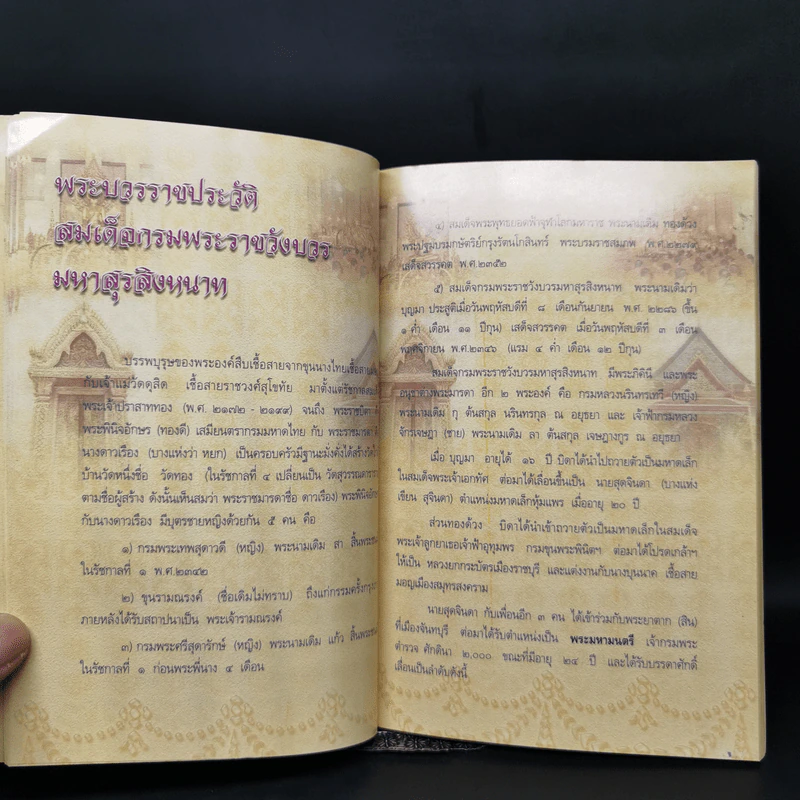 พระบวรราชประวัติ
สมเด็จกรมพระราชวังบวร
มหาสุรสิงหนาท
บรรพบุรุษของพระองค์สืบเชื้อสายจากขุนนางไทยเชื้อสาย
กับเจ้าแม่วัดดุสิต เชื้อสายราชวงศ์สุโขทัย มาตั้งแต่รัชกาลสมเด็จ
พระเจ้าปราสาททอง (พ.ศ. ๒๑๗๒ - ๒๑๙๙) จนถึง พระราชบิดา
พระพินิจอักษร (ทองดี) เสมียนตรากรมมหาดไทย กับ พระราชมารดา
นางดาวเรือง (บางแห่งว่า หยก) เป็นครอบครัวมีฐานะมั่งคั่งได้สร้างวัด
บ้านวัดหนึ่งชื่อ วัดทอง (ในรัชกาลที่ ๔ เปลี่ยนเป็น วัดสุวรรณดาราราม
ตามชื่อผู้สร้าง ดังนั้นเห็นสมว่า พระราชมารดาชื่อ ดาวเรือง) พระพินิจอักษร
กับนางดาวเรือง มีบุตรชายหญิงด้วยกัน ๕ คน คือ
๑) กรมพระเทพสุดาวดี (หญิง) พระนามเดิม สา สิ้นพระชนม์
ในรัชกาลที่ ๑ พ.ศ.๒๓๔๒
๒) ขุนรามณรงค์ (ชื่อเดิมไม่ทราบ) ถึงแก่กรรมครั้งกรุงเก่า
ภายหลังได้รับสถาปนาเป็น พระเจ้ารามณรงค์
๓) กรมพระศรีสุดารักษ์ (หญิง) พระนามเดิม แก้ว สิ้นพระชนม์
ในรัชกาลที่ ๑ ก่อนพระพี่นาง ๔ เดือน
๔) สมเด็จพระพุทธยอดฟ้าจุฬาโลกมหาราช พระนามเดิม ทองด้วง
พระปฐมบรมกษัตริย์กรุงรัตนโกสินทร์ พระบรมราชสมภพ พ.ศ.๒๒๗๙
เสด็จสวรรคต พ.ศ.๒๓๕๒
๕) สมเด็จกรมพระราชวังบวรมหาสุรสิงหนาท พระนามเดิมว่า
บุญมา ประสูติเมื่อวันพฤหัสบดีที่ ๘ เดือนกันยายน พ.ศ.๒๒๘๖ (ขึ้น
๑ ค่ำ เดือน ๑๑ ปีกุน) เสด็จสวรรคต เมื่อวันพฤหัสบดีที่ ๓ เดือน
พฤศจิกายน พ.ศ.๒๓๔๖ (แรม ๔ ค่ำ เดือน ๑๒ ปีกุน)
สมเด็จกรมพระราชวังบวรมหาสุรสิงหนาท มีพระภคินี และพระ
อนุชาต่างพระมารดา อีก ๒ พระองค์ คือ กรมหลวงนรินทรเทวี (หญิง)
พระนามเดิม กุ ต้นสกุล นรินทรกุล ณ อยุธยา และ เจ้าฟ้ากรมหลวง
จักรเจษฎา (ชาย) พระนามเดิม ลา ต้นสกุล เจษฎางกูร ณ อยุธยา
เมื่อ บุญมา อายุได้ ๑๖ ปี บิดาได้นำไปถวายตัวเป็นมหาดเล็ก
ในสมเด็จพระเจ้าเอกทัศ ต่อมาได้เลื่อนขึ้นเป็น นายสุดจินดา (บางแห่ง
เขียน สุจินดา) ตำแหน่งมหาดเล็กหุ้มแพร เมื่ออายุ ๒๐ ปี
ส่วนทองด้วง บิดาได้นำเข้าถวายตัวเป็นมหาดเล็กในสมเด็จ
พระเจ้าลูกยาเธอเจ้าฟ้าอุทุมพร กรมขุนพรพินิตฯ ต่อมาได้โปรดเกล้าฯ
ให้เป็น หลวงยกกระบัตรเมืองราชบุรี และแต่งงานกับนางบุนนาค เชื้อสาย
มอญเมืองสมุทรสงคราม
นายสุดจินดา กับเพื่อนอีก ๓ คน ได้เข้าร่วมกับพระยาตาก (สิน)
ที่เมืองจันทบุรี ต่อมาได้รับตำแหน่งเป็น พระมหามนตรี เจ้ากรมพระ
ตำรวจ ศักดินา ๒,๐๐๐ ขณะที่มีอายุ ๒๔ ปี และได้รับบรรดาศักดิ์
เลื่อนเป็นลำดับดังนี้